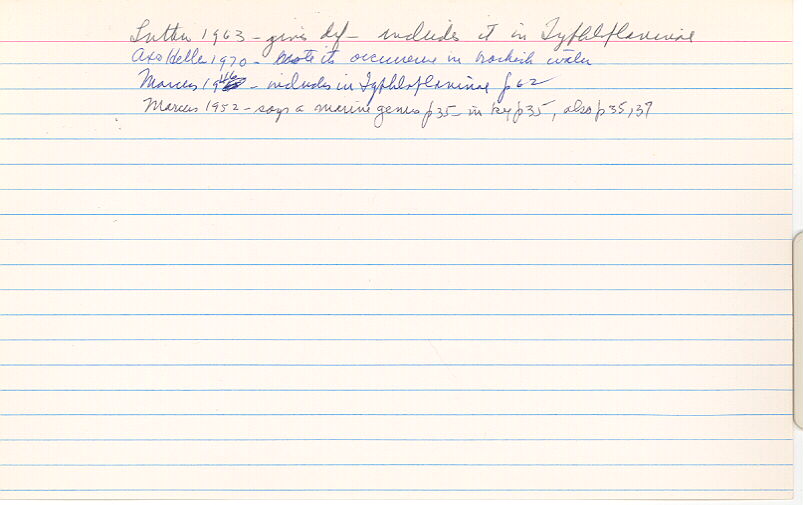 Luther 1963 - gives def - includes it in Typhloplaninae
Ax & Heller 1970 - note its occurrence in brackish water
Marcus 1946 - includes in Typhloplaninae p 62
Marcus 1952 - says a marine genus p 35 - in key p 35, also p 35, 37